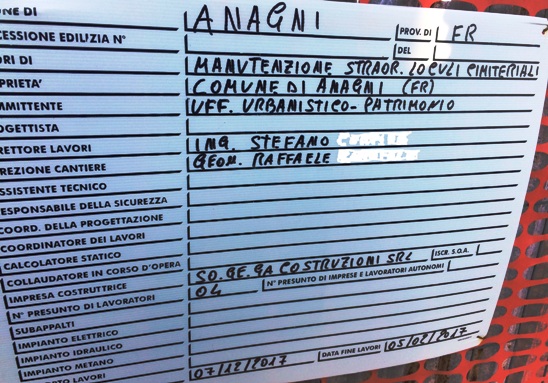 NE DI ANAGNI PROV. DI FR
CESSIONE EDILIZIA N° DEL
ORI DI MANUTENZIONE STRAOR. LOCULI CIMITERIALI
PRIETA' COMUNE DI ANAGNI (FR)
MMITTENTE UFF. URBANISTICO-PATRIMONIO
OGETTISTA
RETTORE LAVORI ING. STEFANO
REZIONE CANTIERE GEOM. RAFFAELE
SSISTENTE TECNICO
ESPONSABILE DELLA SICUREZZA
COORD. DELLA PROGETTAZIONE
COORDINATORE DEI LAVORI
CALCOLATORE STATICO
COLLAUDATORE IN CORSO D'OPERA ISCR. S.O.A.
IMPRESA COSTRUTTRICE SO.GE.GA COSTRUZIONI SRL
N° PRESUNTO DI LAVORATORI 04 N° PRESUNTO DI IMPRESE E LAVORATORI AUTONOMI
SUBAPPALTI
IMPIANTO ELETTRICO
IMPIANTO IDRAULICO
IMPIANTO METANO
LAVORI 07/12/2017 DATA FINE LAVORI 05/02/2017